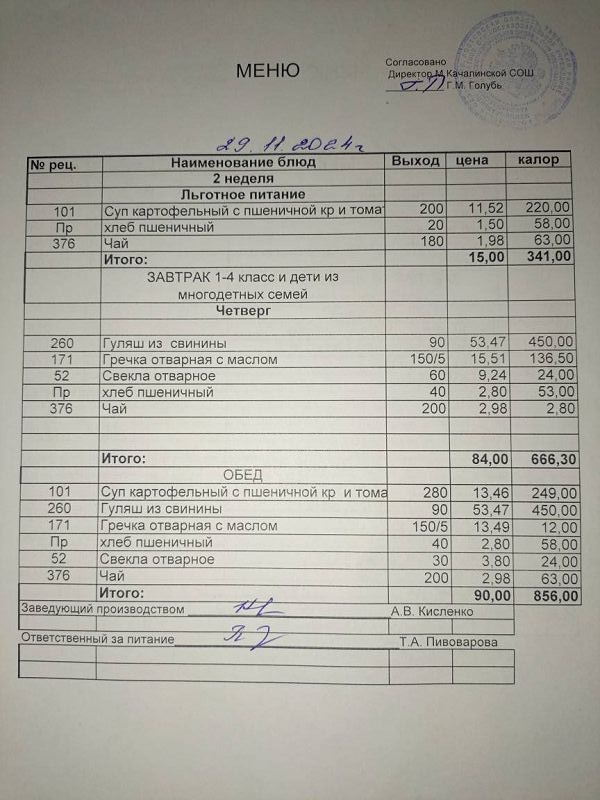 МЕНЮ
Согласовано
Директор М.Качалинской СОШ
Г.М. Голубь
29.11.2024г
№ рец. Наименование блюд Выход цена калор
2 неделя
Льготное питание
101 Суп картофельный с пшеничной кр и тома 200 11,52 220,00
Пр хлеб пшеничный 20 1,50 58,00
376 Чай 180 1,98 63,00
Итого: 15,00 341,00
ЗАВТРАК 1-4 класс и дети из
многодетных семей
Четверг
260 Гуляш из свинины 90 53,47 450,00
171 Гречка отварная с маслом 150/5 15,51 136,50
52 Свекла отварное 60 9,24 24,00
Пр хлеб пшеничный 40 2,80 53,00
376 Чай 200 2,98 2,80
Итого: 84,00 666,30
ОБЕД
101 Суп картофельный с пшеничной кр и тома 280 13,46 249,00
260 Гуляш из свинины 90 53,47 450,00
171 Гречка отварная с маслом 150/5 13,49 12,00
Пр хлеб пшеничный 40 2,80 58,00
52 Свекла отварное 30 3,80 24,00
376 Чай 200 2,98 63,00
Итого: 90,00 856,00
Заведующий производством А.В. Кисленко
Ответственный за питание Т.А. Пивоварова